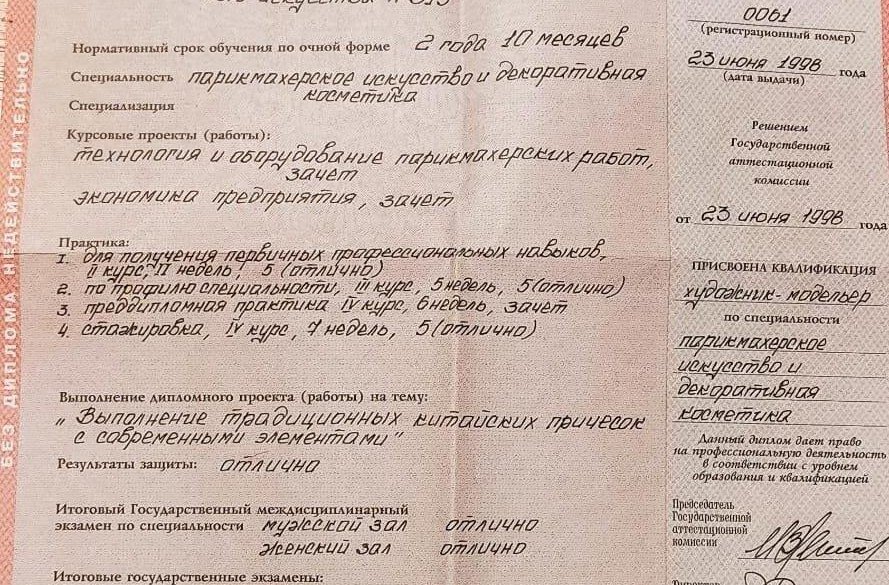 искусства № 813
Нормативный срок обучения по очной форме 2 года 10 месяцев
Специальность парикмахерское искусство и декоративная
косметика
Специализация
Курсовые проекты (работы):
технология и оборудование парикмахерских работ,
зачет
экономика предприятия, зачет
Практика:
1. для получения первичных профессиональных навыков,
II курс, 11 недель, 5 (отлично)
2. по профилю специальности, III курс, 5 недель, 5 (отлично)
3. преддипломная практика IV курс, 6 недель, зачет
4. стажировка, IV курс, 7 недель, 5 (отлично)
Выполнение дипломного проекта (работы) на тему:
„Выполнение традиционных китайских причесок
с современными элементами"
Результаты защиты: отлично
Итоговый Государственный междисциплинарный
экзамен по специальности мужской зал отлично
женский зал отлично
Итоговые государственные экзамены:
БЕЗ ДИПЛОМА НЕДЕЙСТВИТЕЛЬНО
0061
(регистрационный номер)
23 июня 1998 года
(дата выдачи)
Решением
Государственной
аттестационной
комиссии
от 23 июня 1998 года
ПРИСВОЕНА КВАЛИФИКАЦИЯ
художник-модельер
по специальности
парикмахерское
искусство и
декоративная
косметика
Данный диплом дает право
на профессиональную деятельность
в соответствии с уровнем
образования и квалификацией
Председатель
Государственной
аттестационной
комиссии
Директор